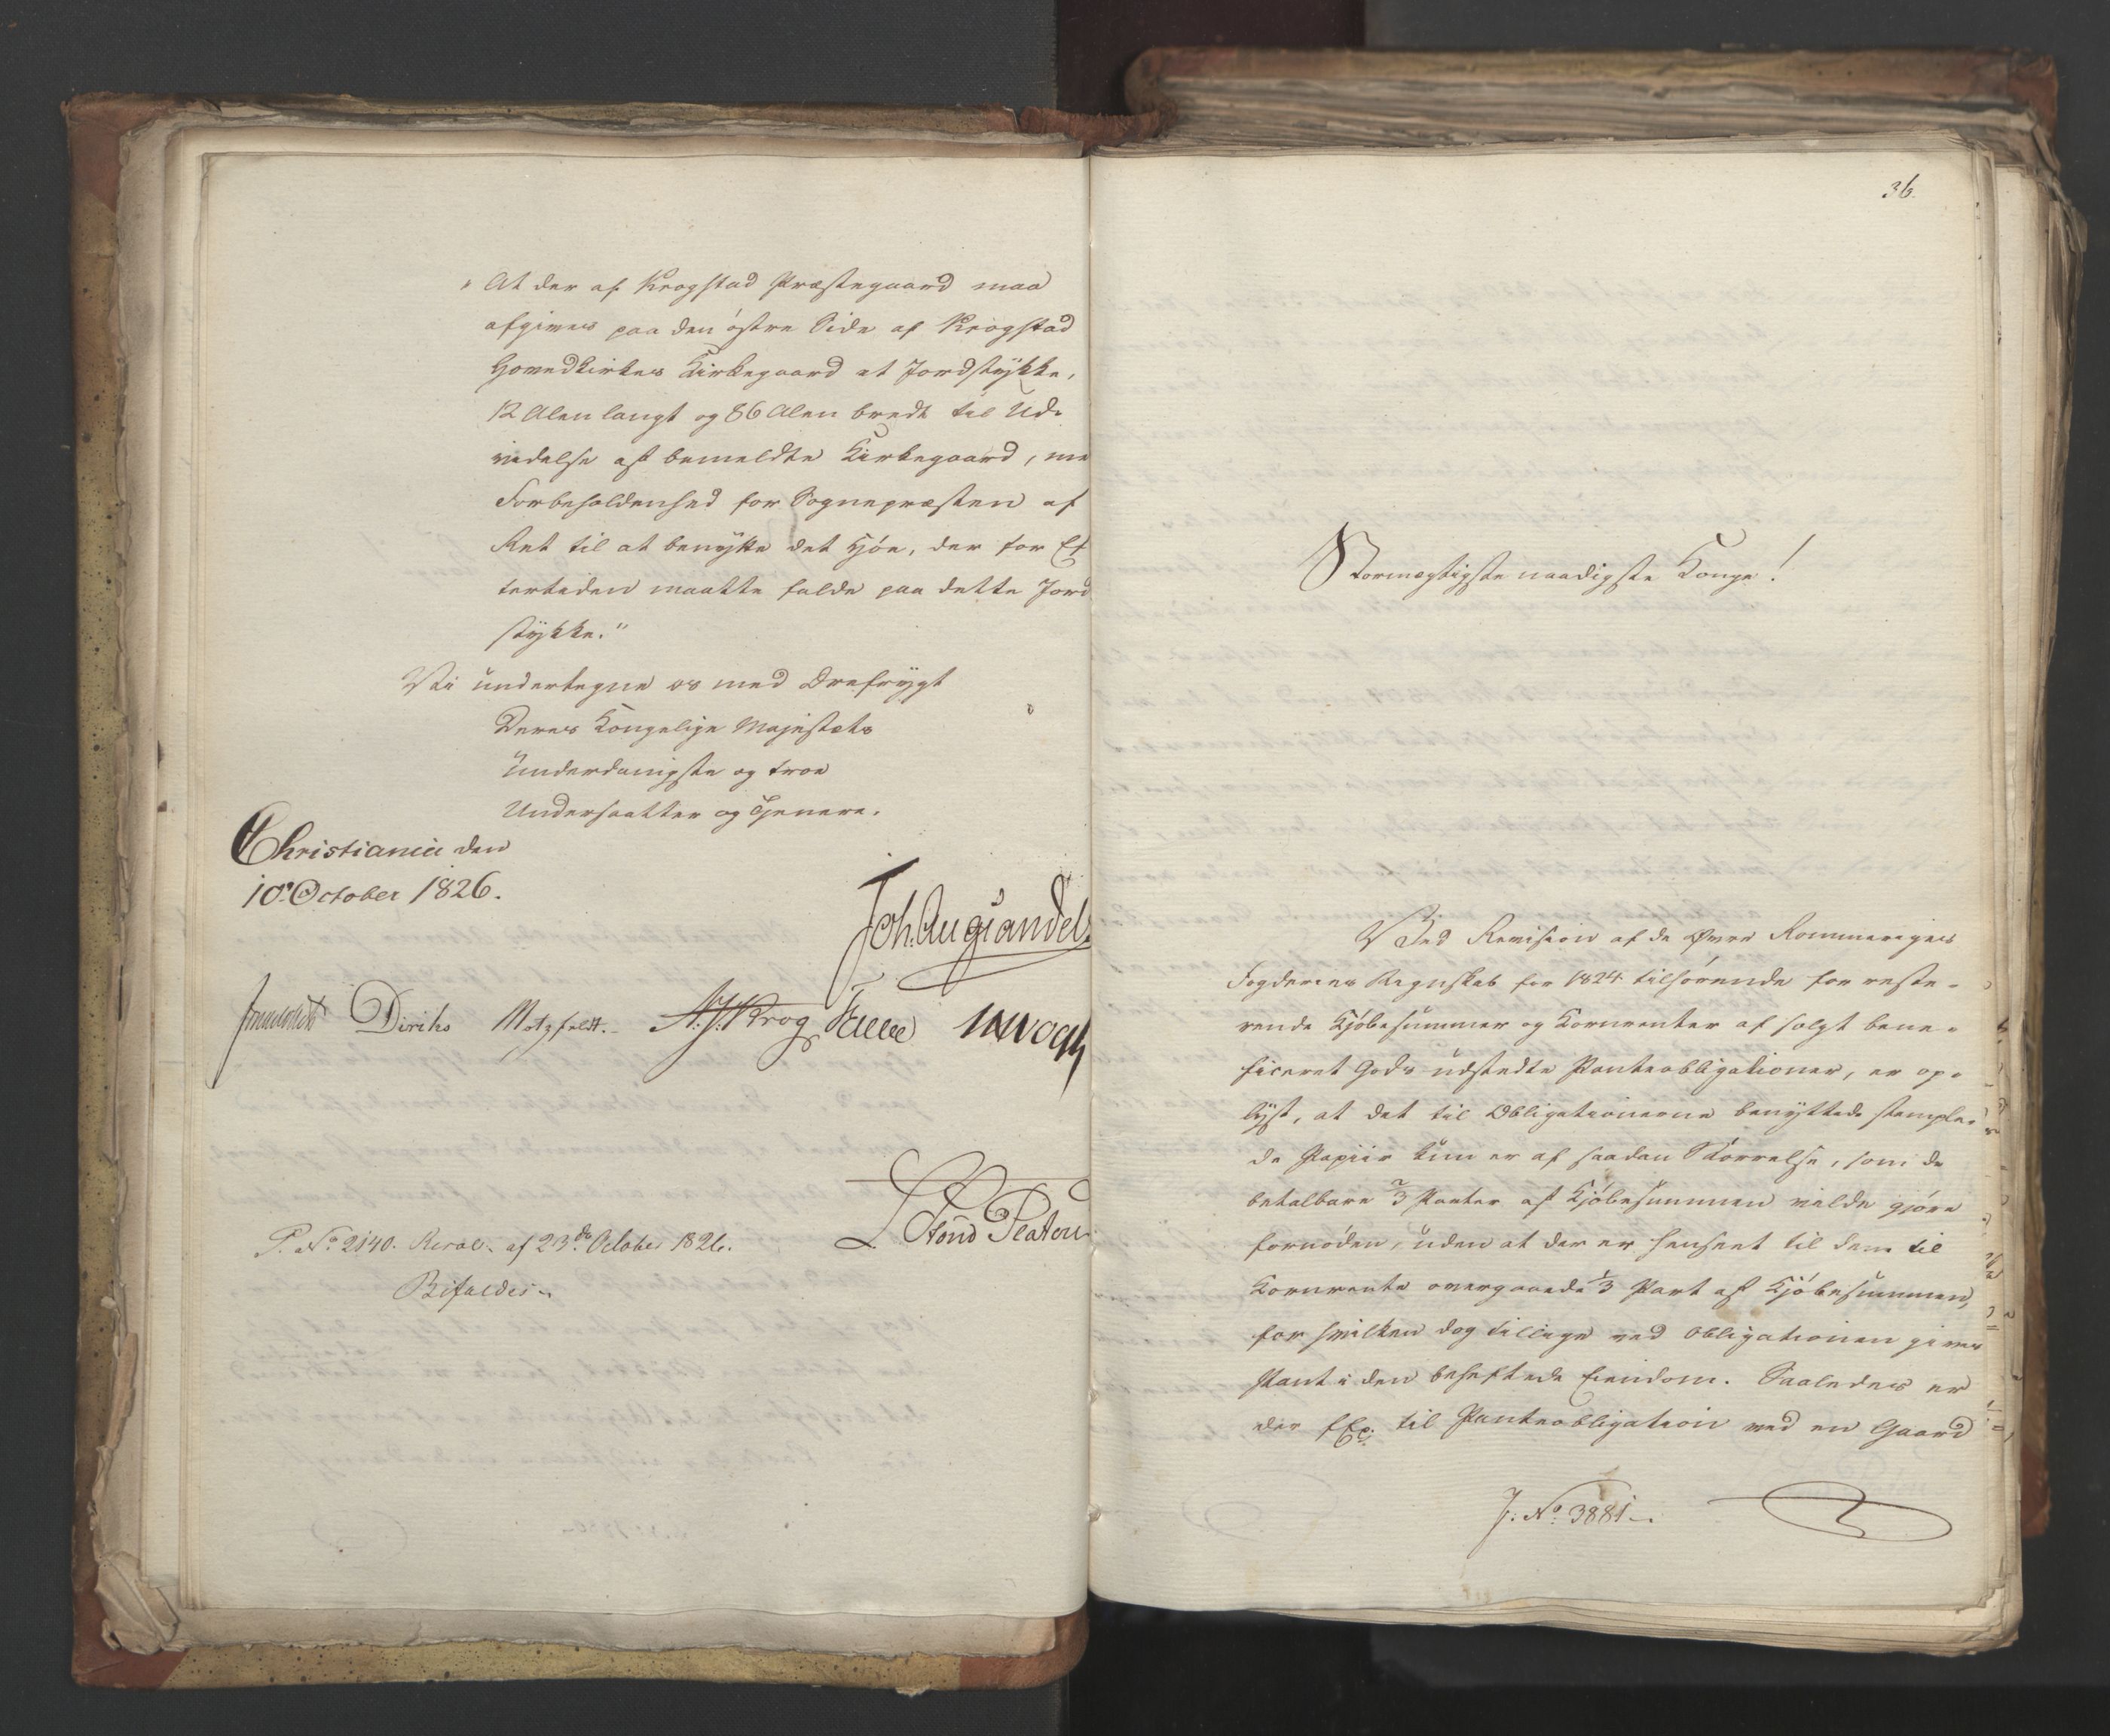 "At der af Krogstad Præstegaard maa
afgives paa den østre Side af Krogstad
Hovedkirkes Kirkegaard et Jordstykke,
12 Alen langt og 86 Alen bredt til Ud-
videlse af bemeldte Kirkegaard, me
Forbeholdenhed for Sognepræsten af
Ret til at benytte det Høe, der for Ef
tertiden maatte falde paa dette Jord
stykke."
Vi undertegne os med Ærefrygt
Deres Kongelige Majestæts
underdanigste og troe
Undersaatter og Tjenere.
Christiania den
10. October 1826.
Joh. Aug Sandels
Diriks Motzfeldt. A. J. Krog Fasting JHVogt
L. Stoud Platou
P. No 2140. Resol. af 23de October 1826.
Bifaldes.
36.
Stormægtigste naadigste Konge!
Ved Revision af de Øvre Rommeriges
Fogderies Regnskab for 1824 tilhørende for reste-
rende Kjøbesummer og Kornrenter af solgt bene-
ficeret Gods udstedte Panteobligationer, er op-
lyst, at det til Obligationerne benyttede stemple-
de Papiir kun er af saadan Størrelse, som de
betalbare 2/3 Parter af Kjøbesummen vilde gjøre
fornøden, uden at der er henseet til den til
Kornrente overgaaede 1/3 Part af Kjøbesummen,
for hvilken dog tillige ved Obligationen gives
Pant i den beheftede Eiendom. Saaledes er
der f Ex. til Panteobligation ved en Gaard
J. No 3881